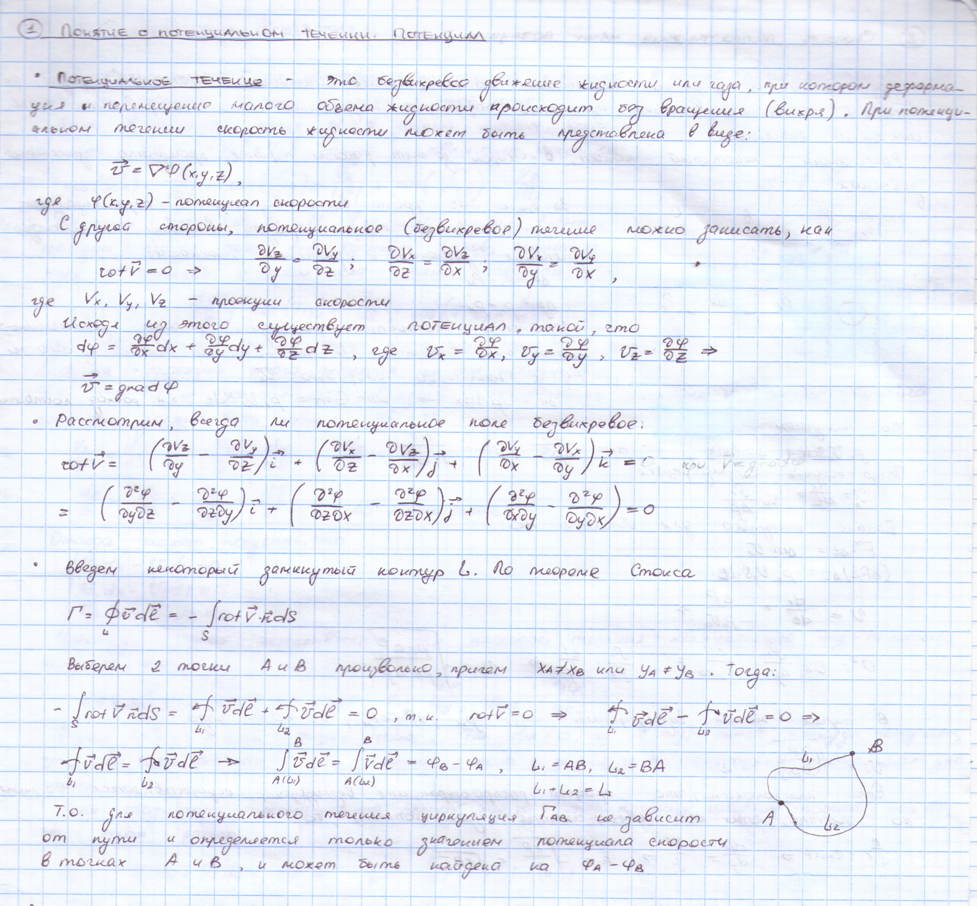 ① Понятие о потенциальном течении. Потенциал
• Потенциальное течение – это безвихревое движение жидкости или газа, при котором деформа-
ция и перемещение малого объема жидкости происходит без вращения (вихря). При потенци-
альном течении скорость жидкости может быть представлена в виде:
v⃗ = ∇φ(x,y,z),
где φ(x,y,z) – потенциал скорости
С другой стороны, потенциальное (безвихревое) течение можно записать, как
rot v⃗ = 0 ⇒ ∂Vz/∂y = ∂Vy/∂z ; ∂Vx/∂z = ∂Vz/∂x ; ∂Vx/∂y = ∂Vy/∂x ,
где Vx, Vy, Vz – проекции скорости
Исходя из этого существует потенциал, такой, что
dφ = ∂φ/∂x dx + ∂φ/∂y dy + ∂φ/∂z dz , где vx = ∂φ/∂x, vy = ∂φ/∂y , vz = ∂φ/∂z ⇒
v⃗ = grad φ
• Рассмотрим, всегда ли потенциальное поле безвихревое:
rot v⃗ = (∂Vz/∂y − ∂Vy/∂z) i⃗ + (∂Vx/∂z − ∂Vz/∂x) j⃗ + (∂Vy/∂x − ∂Vx/∂y) k⃗ =
= (∂²φ/∂y∂z − ∂²φ/∂z∂y) i⃗ + (∂²φ/∂z∂x − ∂²φ/∂z∂x) j⃗ + (∂²φ/∂x∂y − ∂²φ/∂y∂x) = 0
• Введем некоторый замкнутый контур L. По теореме Стокса
Γ = ∮L v⃗ dℓ⃗ = − ∫S rot v⃗ · n⃗ dS
Выберем 2 точки A и B произвольно, причем xA ≠ xB или yA ≠ yB . Тогда:
− ∫S rot v⃗ n⃗ dS = ∮L₁ v⃗ dℓ⃗ + ∮L₂ v⃗ dℓ⃗ = 0 , т.к. rot v⃗ = 0 ⇒ ∮L₁ v⃗ dℓ⃗ − ∮L₂ v⃗ dℓ⃗ = 0 ⇒
∮L₁ v⃗ dℓ⃗ = ∮L₂ v⃗ dℓ⃗ ⇒ ∫A(L₁)^B v⃗ dℓ⃗ = ∫A(L₂)^B v⃗ dℓ⃗ = φB − φA , L₁ = AB, L₂ = BA
L₁ + L₂ = L
Т.о. для потенциального течения циркуляция ΓAB не зависит
от пути и определяется только значением потенциала скорости
в точках A и B , и может быть найдена как φA − φB
L₁
B
A
L₂